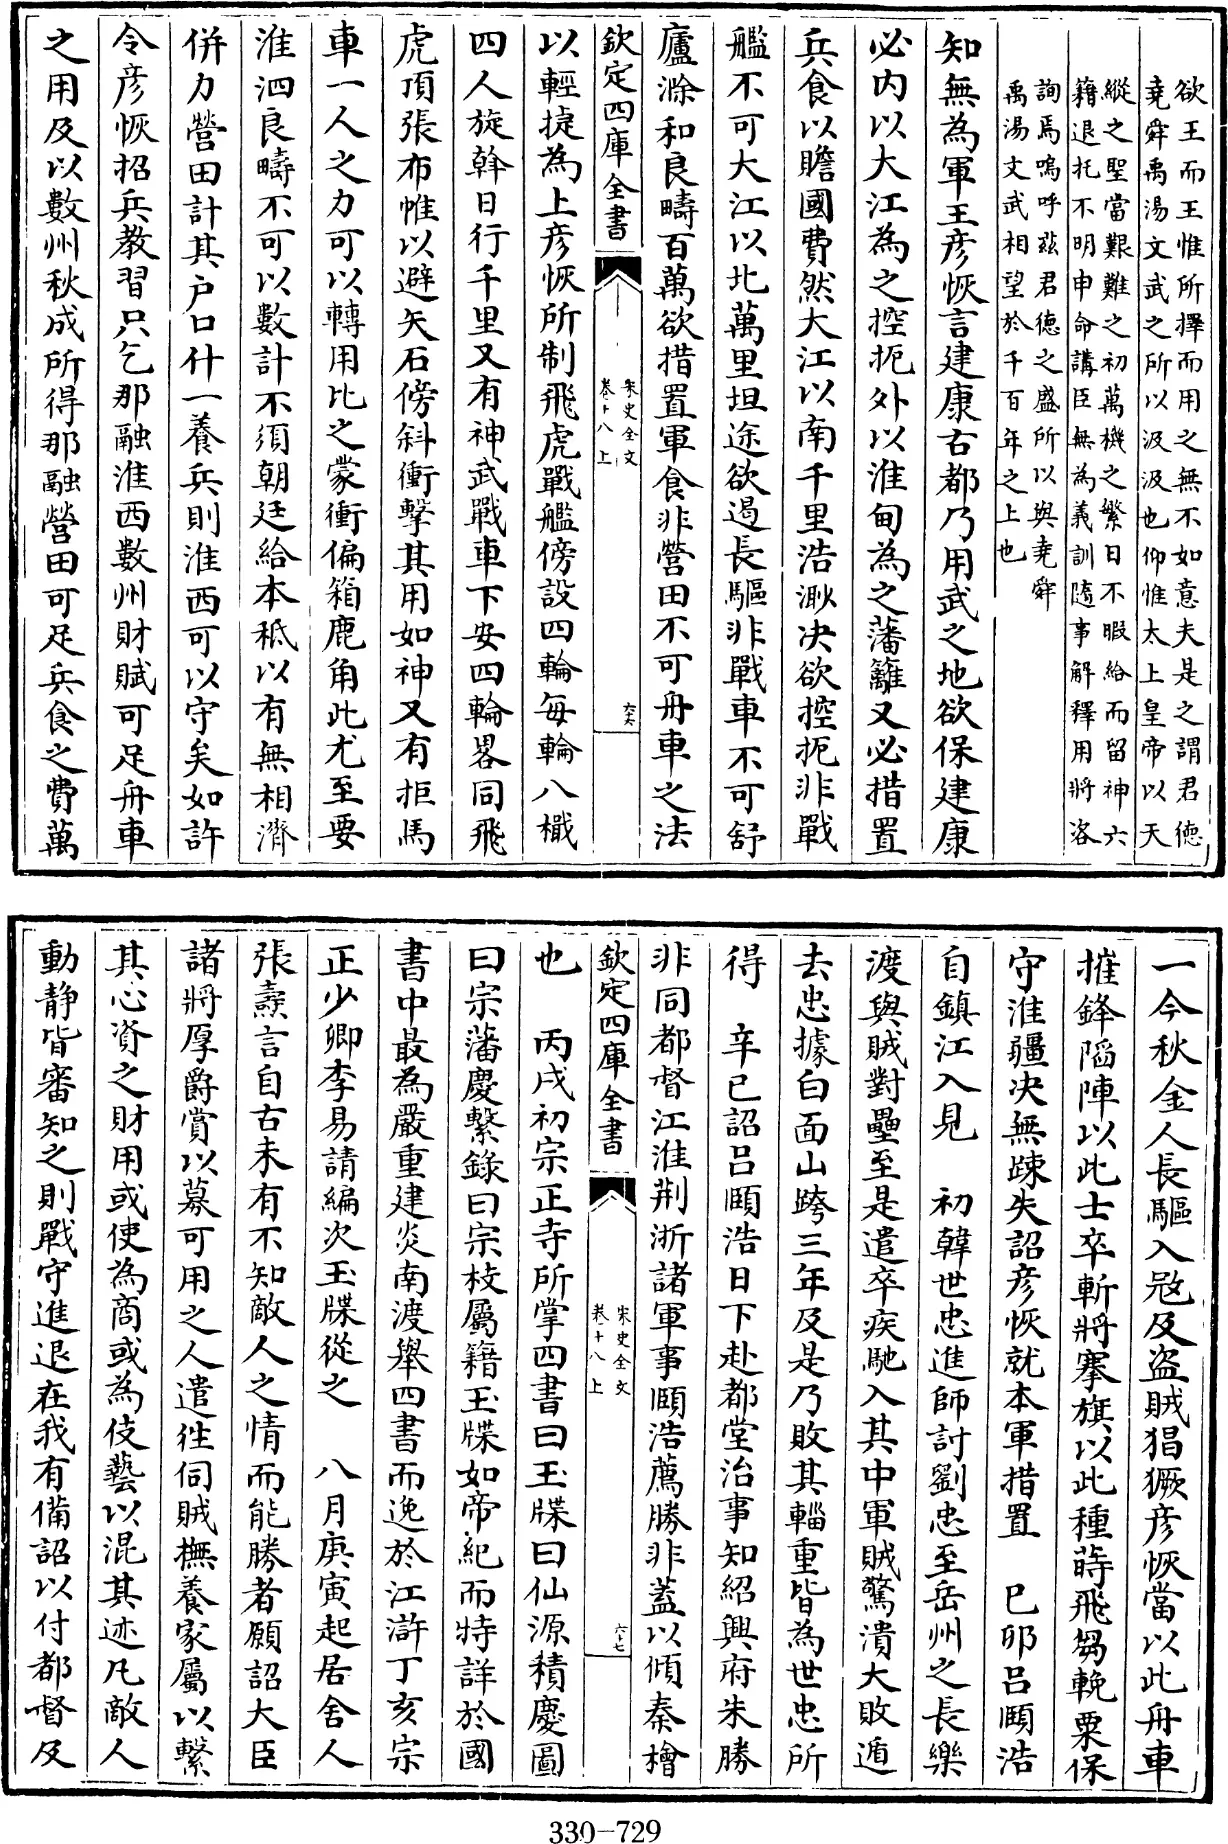 欲王而王惟所擇而用之無不如意夫是之謂君德
堯舜禹湯文武之所以汲汲也仰惟太上皇帝以天
縱之聖當艱難之初萬機之繁日不暇給而留神六
籍退托不明申命講臣無為義訓隨事解釋用將洛
詢焉嗚呼茲君德之盛所以與堯舜
禹湯文武相望於千百年之上也
知無為軍王彦恢言建康古都乃用武之地欲保建康
必内以大江為之控扼外以淮甸為之藩籬又必措置
兵食以贍國費然大江以南千里浩渺决欲控扼非戰
艦不可大江以北萬里坦途欲遏長驅非戰車不可舒
廬滁和良疇百萬欲措置軍食非營田不可舟車之法
欽定四庫全書
宋史全文
卷十八上
六六
以輕捷為上彦恢所制飛虎戰艦傍設四輪每輪八檝
四人旋斡日行千里又有神武戰車下安四輪畧同飛
虎頂張布帷以避矢石傍斜衝擊其用如神又有拒馬
車一人之力可以轉用比之蒙衝偏箱鹿角此尤至要
淮泗良疇不可以數計不須朝廷給本秪以有無相濟
併力營田計其户口什一養兵則淮西可以守矣如許
令彦恢招兵教習只乞那融淮西數州財賦可足舟車
之用及以數州秋成所得那融營田可足兵食之費萬
一今秋金人長驅入冦及盗賊猖獗彦恢當以此舟車
摧鋒䧟陣以此士卒斬將搴旗以此種蒔飛芻輓粟保
守淮疆决無踈失詔彦恢就本軍措置 已卯吕頤浩
自鎮江入見 初韓世忠進師討劉忠至岳州之長樂
渡與賊對壘至是遣卒疾馳入其中軍賊驚潰大敗遁
去忠據白面山跨三年及是乃敗其輜重皆為世忠所
得 辛已詔吕頤浩日下赴都堂治事知紹興府朱勝
非同都督江淮荆浙諸軍事頤浩薦勝非蓋以傾秦檜
欽定四庫全書
宋史全文
卷十八上
六七
也 丙戌初宗正寺所掌四書曰玉牒曰仙源積慶圖
曰宗藩慶繫錄曰宗枝屬籍玉牒如帝紀而特詳於國
書中最為嚴重建炎南渡舉四書而逸於江滸丁亥宗
正少卿李易請編次玉牒從之 八月庚寅起居舍人
張燾言自古未有不知敵人之情而能勝者願詔大臣
諸將厚爵賞以募可用之人遣徃伺賊撫養家屬以繫
其心資之財用或使為商或為伎藝以混其迹凡敵人
動静皆審知之則戰守進退在我有備詔以付都督及
330-729